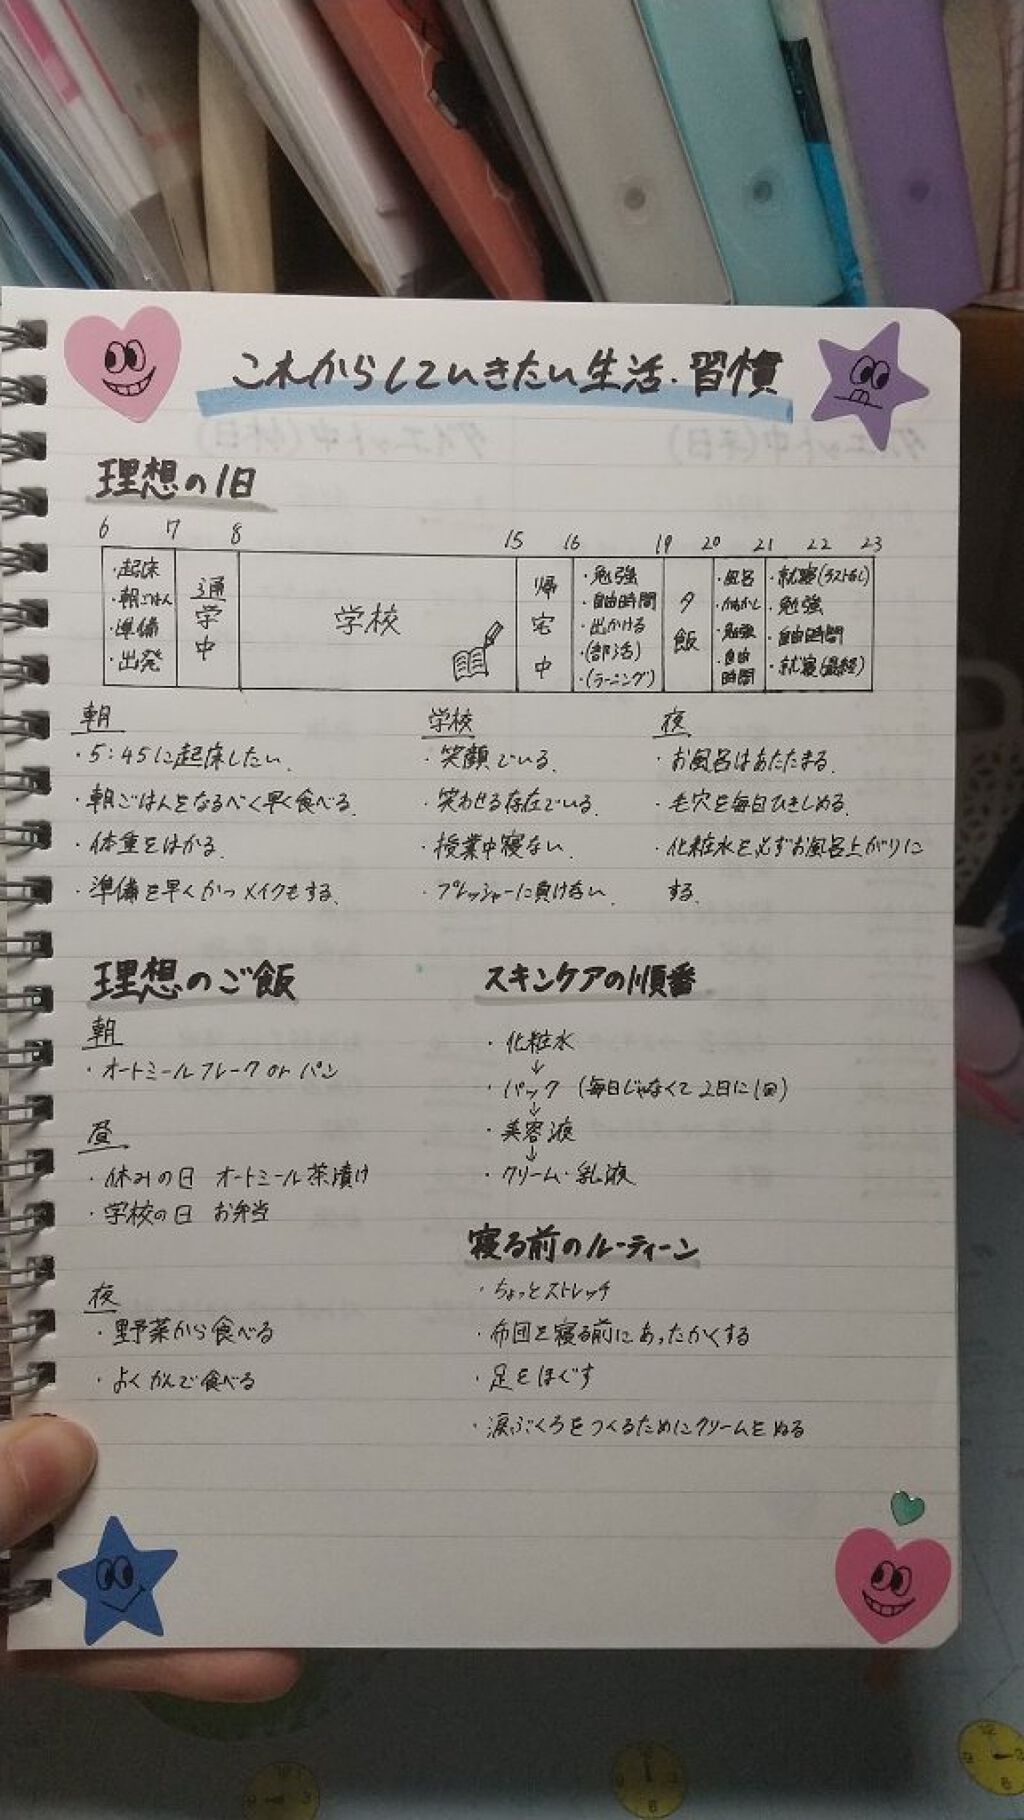 これからしていきたい生活・習慣
理想の1日
6 7 8 15 16 19 20 21 22 23
・起床
・朝ごはん
・準備
・出発
通学中
学校
帰宅中
・勉強
・自由時間
・出かける
・(部活)
・(ラーニング)
夕飯
・風呂
・勉強
・自由時間
・就寝
・勉強
・自由時間
・就寝(最終)
朝
・5:45に起床したい、
・朝ごはんをなるべく早く食べる、
・体重をはかる、
・準備を早くかつメイクもする、
学校
・笑顔でいる、
・笑わせる存在でいる、
・授業中寝ない、
・プレッシャーに負けない、
夜
・お風呂はあたたまる、
・毛穴を毎日ひきしめる、
・化粧水を必ずお風呂上がりに
する、
理想のご飯
朝
・オートミールフレーク or パン
昼
・休みの日 オートミール茶漬け
・学校の日 お弁当
夜
・野菜から食べる
・よくかんで食べる
スキンケアの順番
・化粧水
↓
・パック (毎日じゃなくて2日に1回)
↓
・美容液
↓
・クリーム・乳液
寝る前のルーティーン
・ちょっとストレッチ
・布団を寝る前にあったかくする
・足をほぐす
・涙ぶくろをつくるためにクリームをぬる